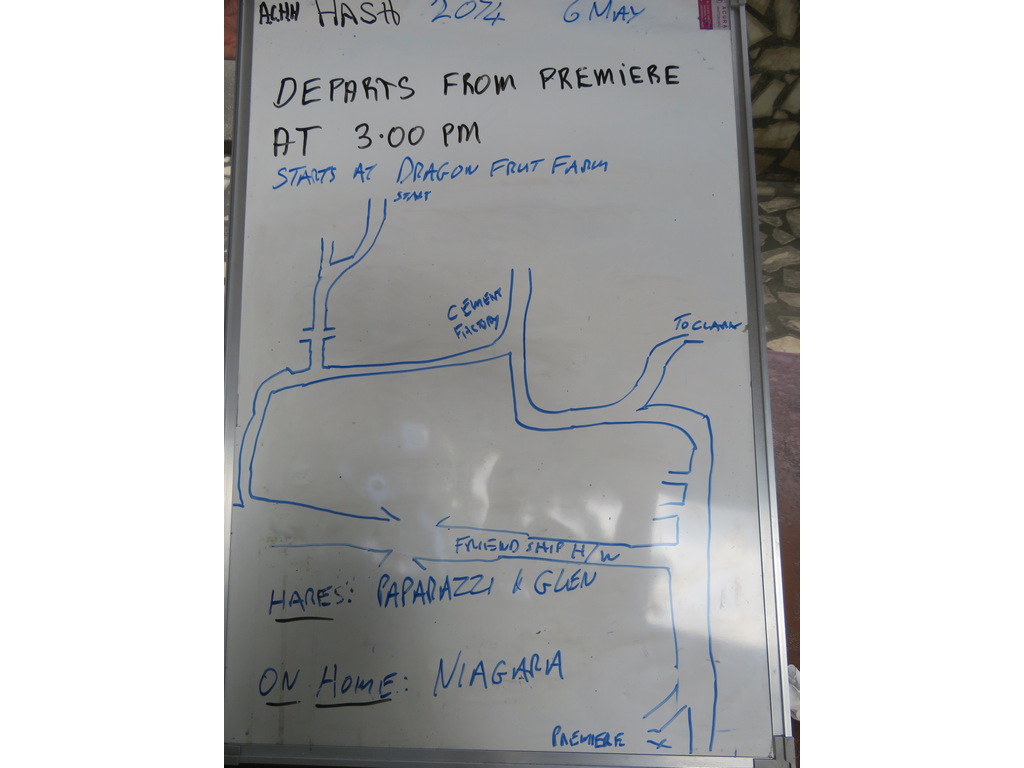 ACHH HASH 2074 6 MAY
DEPARTS FROM PREMIERE
AT 3.00 PM
STARTS AT DRAGON FRUT FARM
START
CEMENT
FACTORY
TO CLARK
FRIENDSHIP H/W
HARES: PAPARAZZI & GLEN
ON HOME: NIAGARA
PREMIERE X